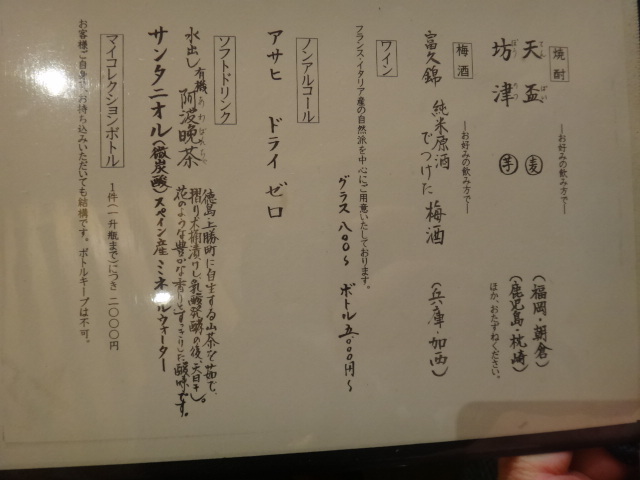 焼酎
―お好みの飲み方で―
天盃 麦 (福岡・朝倉)
坊津 芋 (鹿児島・枕崎)
ほか、おたずねください。
梅酒
―お好みの飲み方で―
富久錦 純米原酒でつけた 梅酒 (兵庫・加西)
ワイン
フランス・イタリア産の自然派を中心にご用意いたしております。
グラス 八〇〇〜 ボトル 五、〇〇〇円〜
ノンアルコール
アサヒ ドライ ゼロ
ソフトドリンク
水出し有機 阿波晩茶
あわばんちゃ
徳島上勝町に自生する山茶を茹で、
摺り木桶漬けし乳酸発酵の後、天日干し。
花のような豊かな香りとすっきりした酸味です。
サンタニオル(微炭酸) スペイン産 ミネラルウォーター
マイコレクションボトル 1件(一升瓶まで)につき 二〇〇〇円
お客様ご自身でお持ち込みいただいても結構です。ボトルキープは不可。